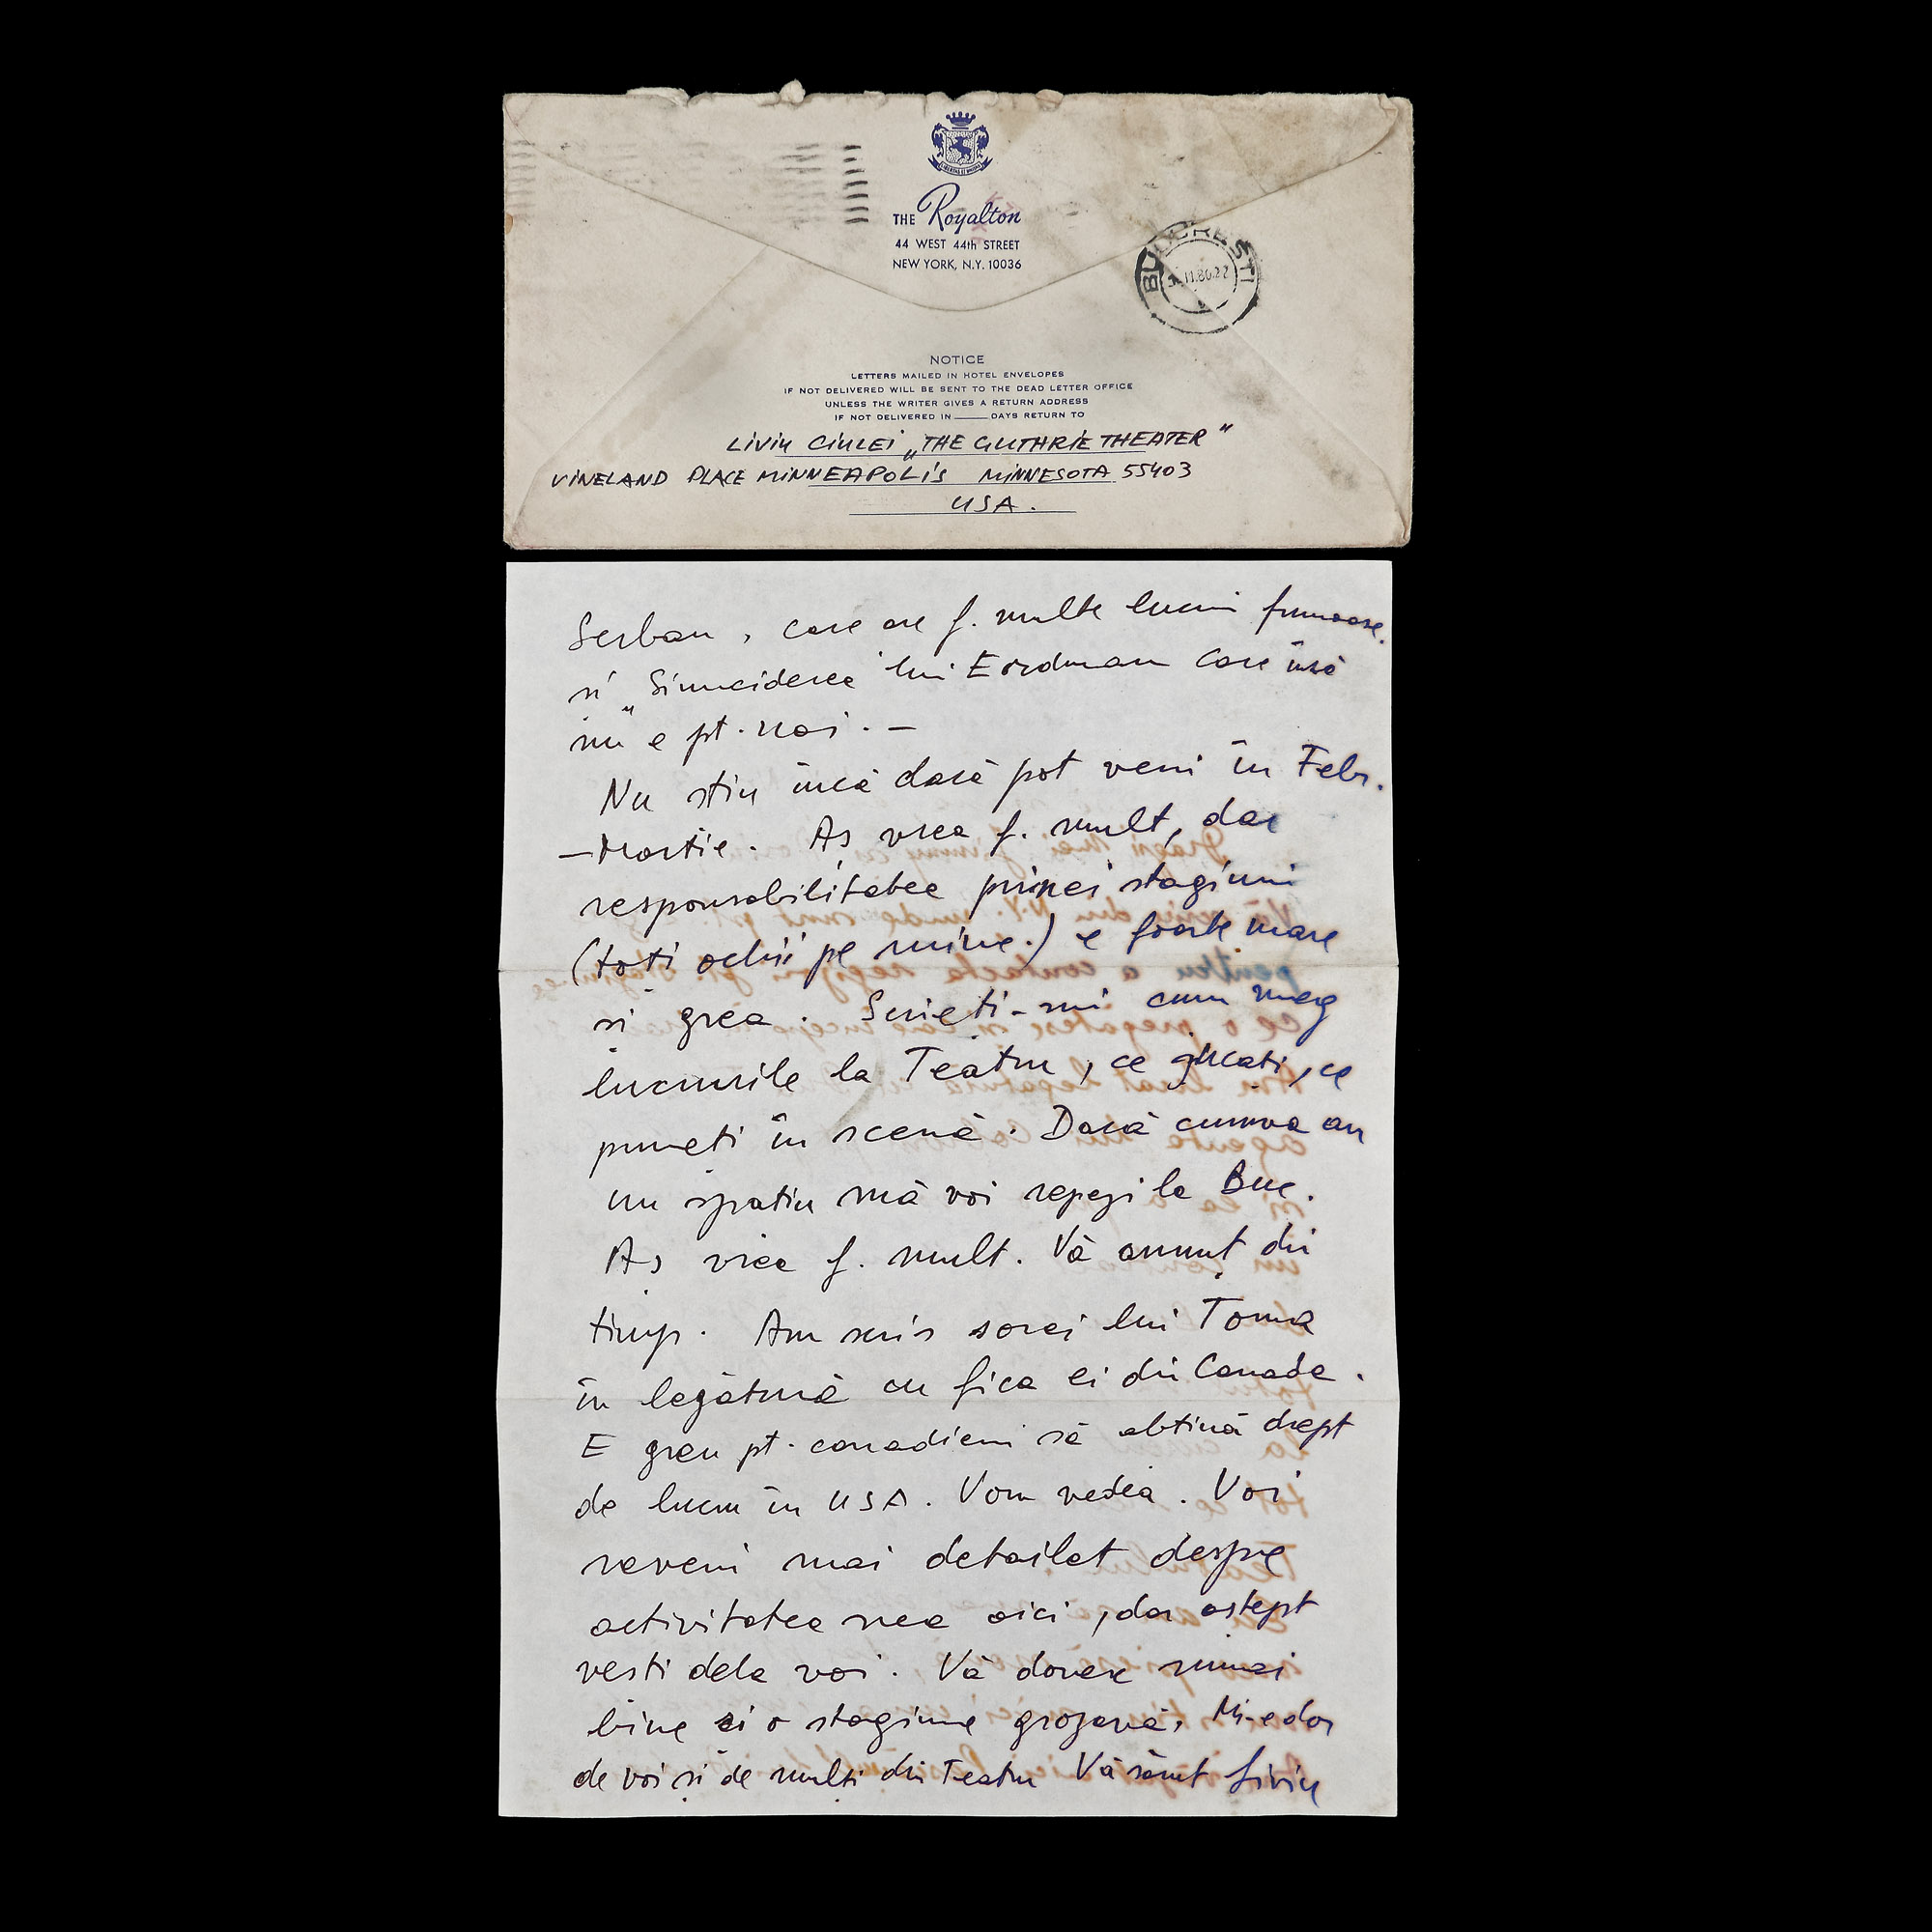 THE Royalton
44 WEST 44th STREET
NEW YORK, N.Y. 10036
BUCUREŞTI
11.80.22
NOTICE
LETTERS MAILED IN HOTEL ENVELOPES
IF NOT DELIVERED WILL BE SENT TO THE DEAD LETTER OFFICE
UNLESS THE WRITER GIVES A RETURN ADDRESS
IF NOT DELIVERED IN ____ DAYS RETURN TO
LIVIU CIULEI „THE GUTHRIE THEATER"
VINELAND PLACE MINNEAPOLIS MINNESOTA 55403
USA.
Serban, care are f. multe lucruri frumoase.
si „Sinuciderea" lui Erdman care însă
nu e pt. noi. —
Nu stiu încă dacă pot veni în Febr.
—Martie. Aș vrea f. mult, dar
responsabilitatea primei stagiuni
(toți ochii pe mine.) e foarte mare
și grea. Scrieți-mi cum merg
lucrurile la Teatru, ce jucați, ce
puneți în scenă. Dacă cumva am
un spatiu mă voi repezi la Buc.
Aș vrea f. mult. Vă anunț din
timp. Am scris sorei lui Toma
în legătură cu fica ei din Canada.
E greu pt. canadieni să obțină drept
de lucru în USA. Vom vedea. Voi
reveni mai detailat despre
activitatea mea aici, dar aștept
vesti dela voi. Vă doresc numai
bine si o stagiune grozavă. Mi-e dor
de voi și de mulți din Teatru Vă sărut Liviu